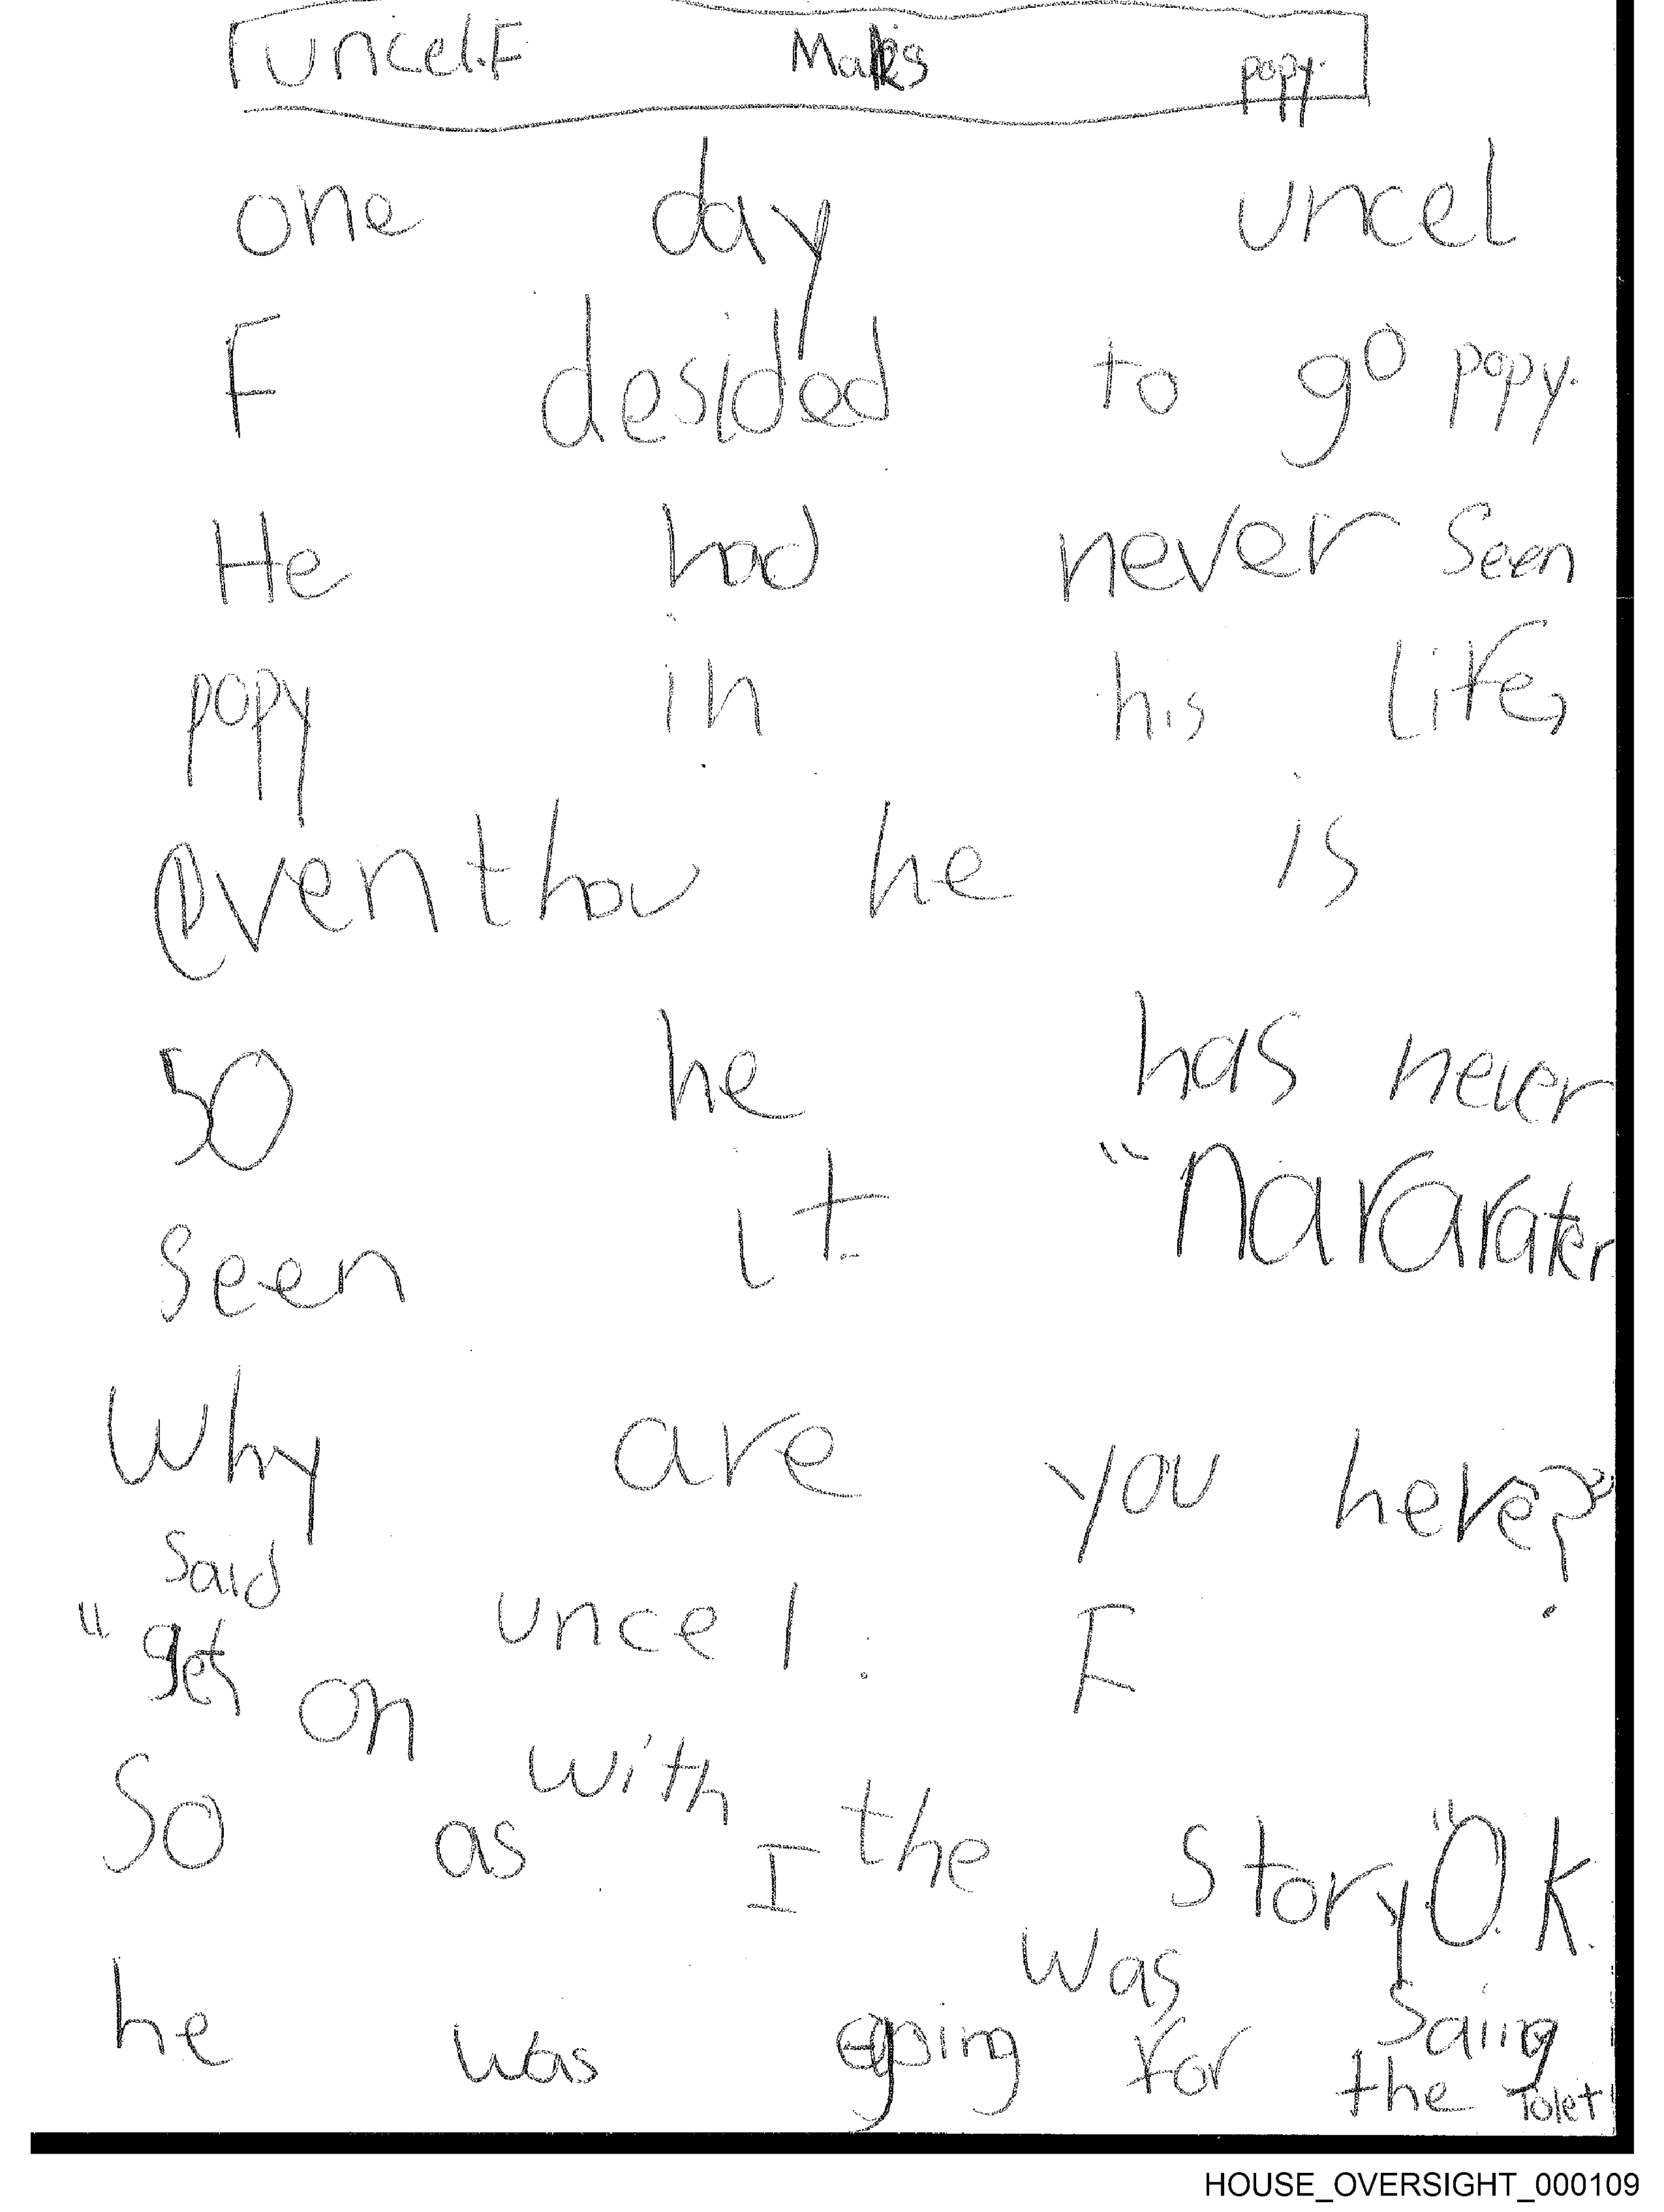 uncel.F Makes popy.
one day uncel
F desided to go popy.
He had never seen
popy in his life,
eventhou he is
50 he has never
seen it. "nararater
Why are you here?"
said uncel. F
"get on with the story" O.K.
So as I was saiing
he was going for the Tolet
HOUSE_OVERSIGHT_000109